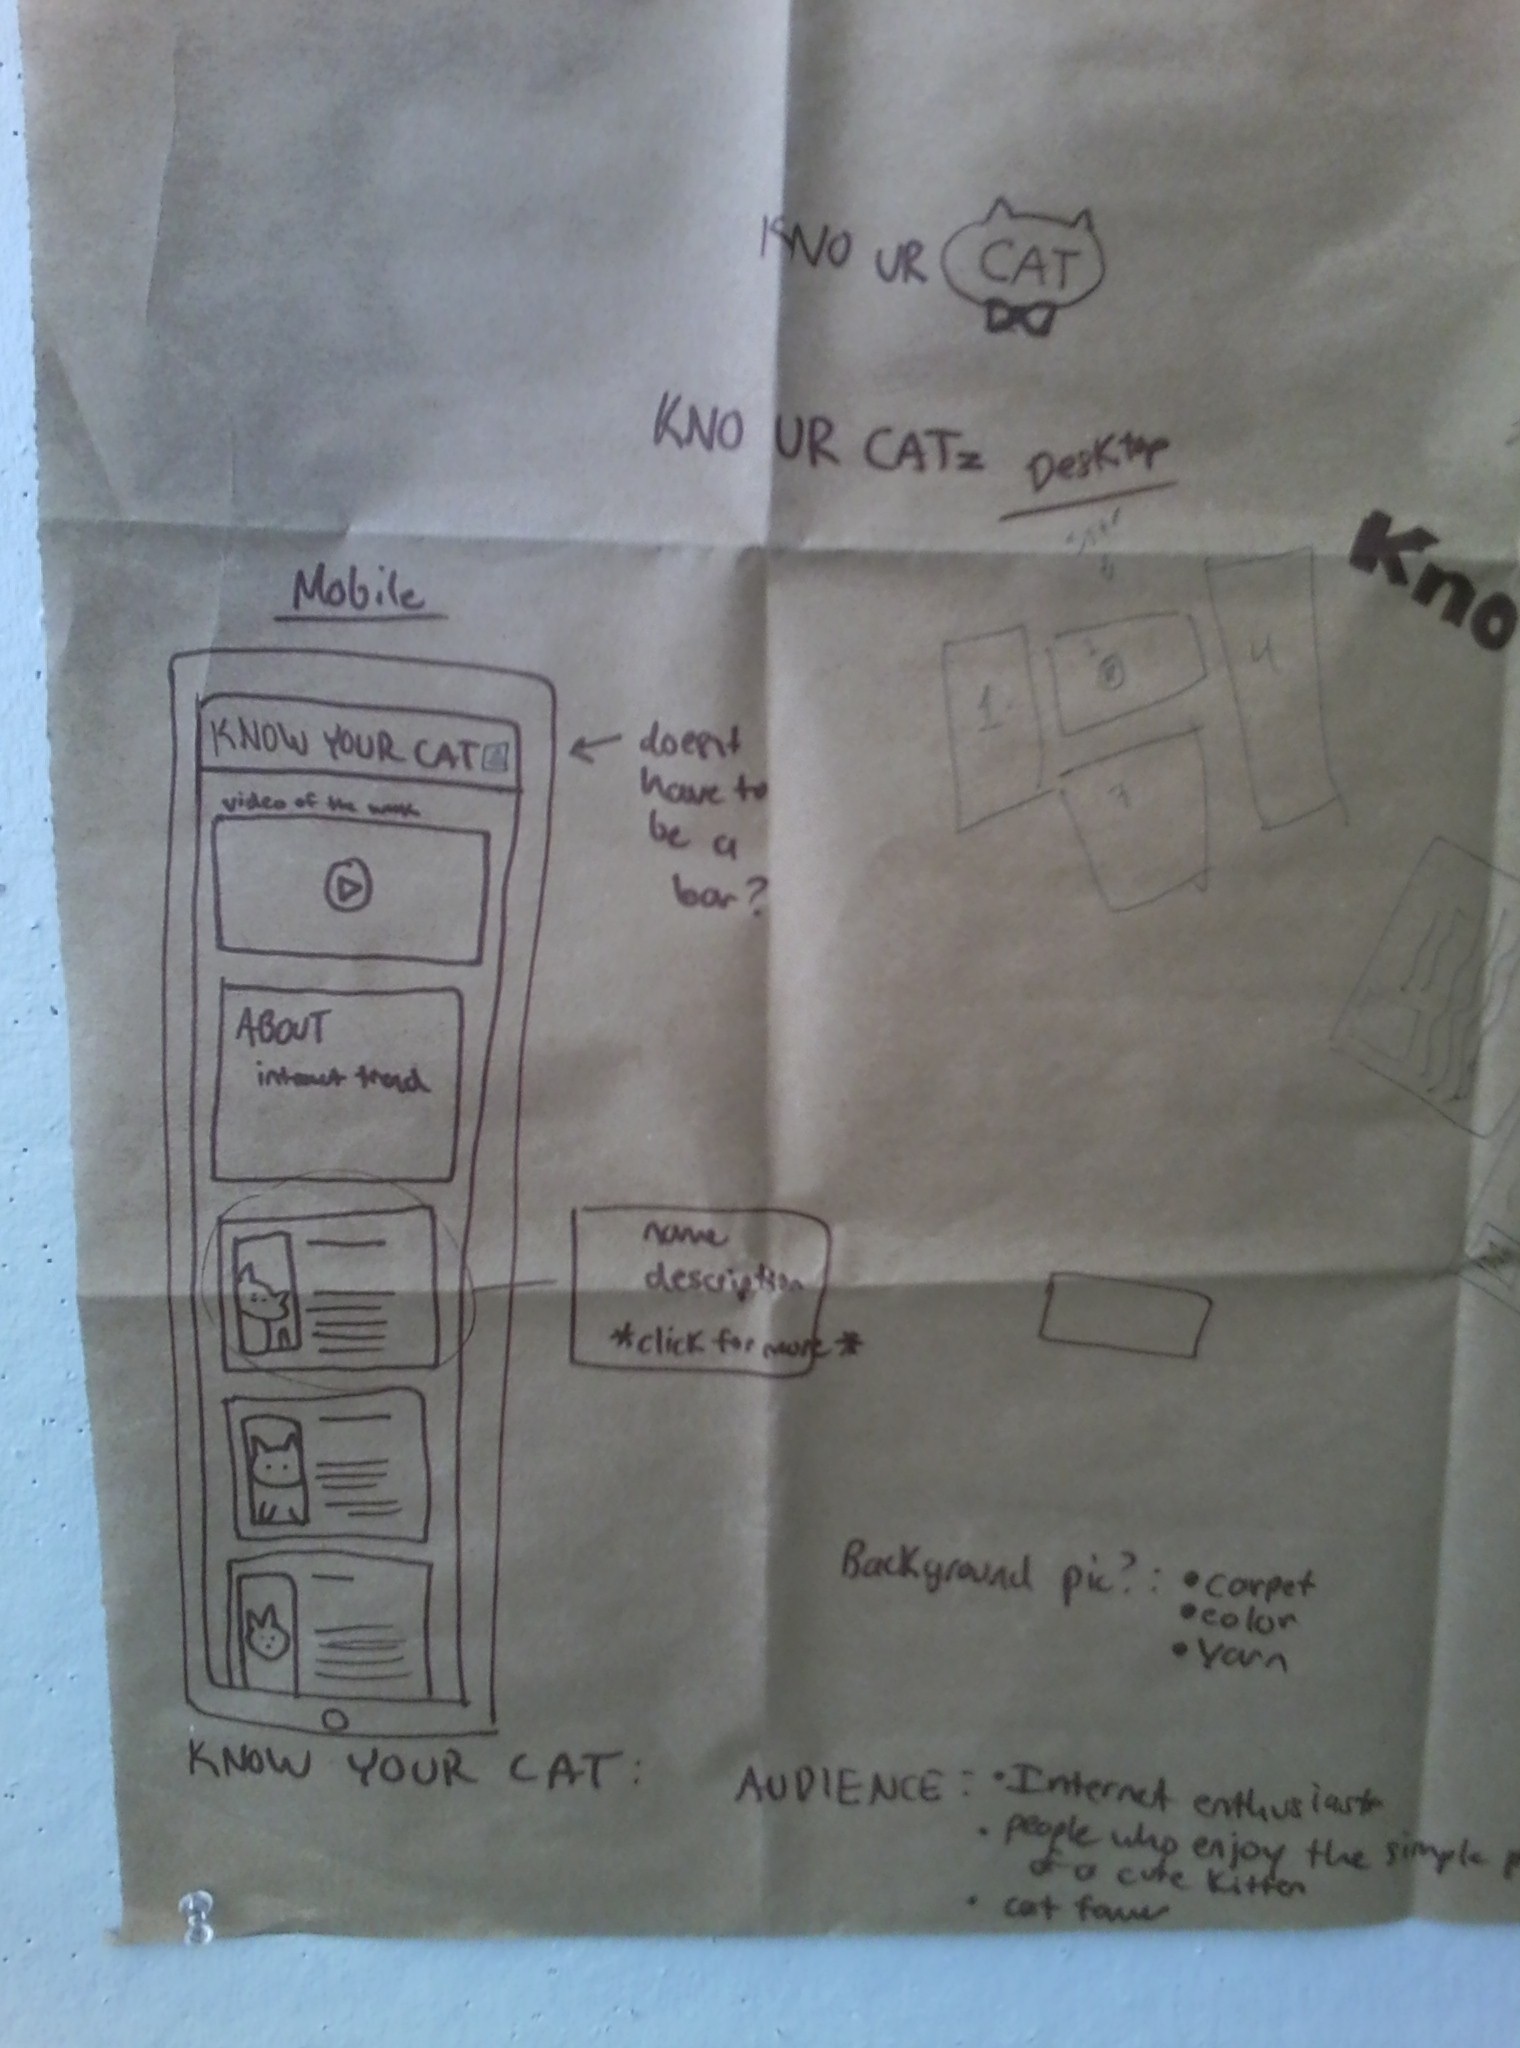 KNO UR CAT
KNO UR CATz
Desktop
Kno
Mobile
KNOW YOUR CAT
video of the week
doesnt
have to
be a
bar?
1
4
ABOUT
internet trend
name
description
*click for more*
Background pic?: • carpet
• color
• Yarn
KNOW YOUR CAT:
AUDIENCE: • Internet enthusiast
• people who enjoy the simple
of a cute kitten
• cat